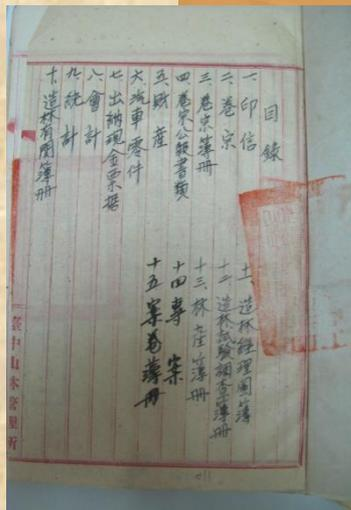 目錄
一、印信
二、卷宗
三、卷宗簿冊
四、卷宗公報書類
五、財產
六、汽車零件
七、出納現金票據
八、會計
九、統計
十、造林有關簿冊
十一、造林經理圖簿
十二、造林試驗調查簿冊
十三、林產簿冊
十四專案
十五案卷簿冊
臺中山林管理所